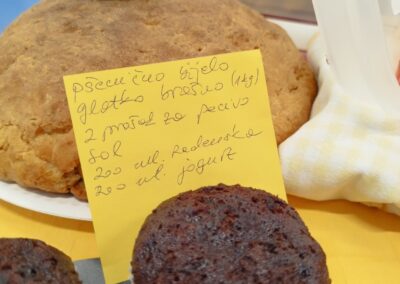 pšenično bijelo
glatko brašno (1kg)
2 praška za pecivo
sol
200 ml. Radenska
200 ml. jogurt